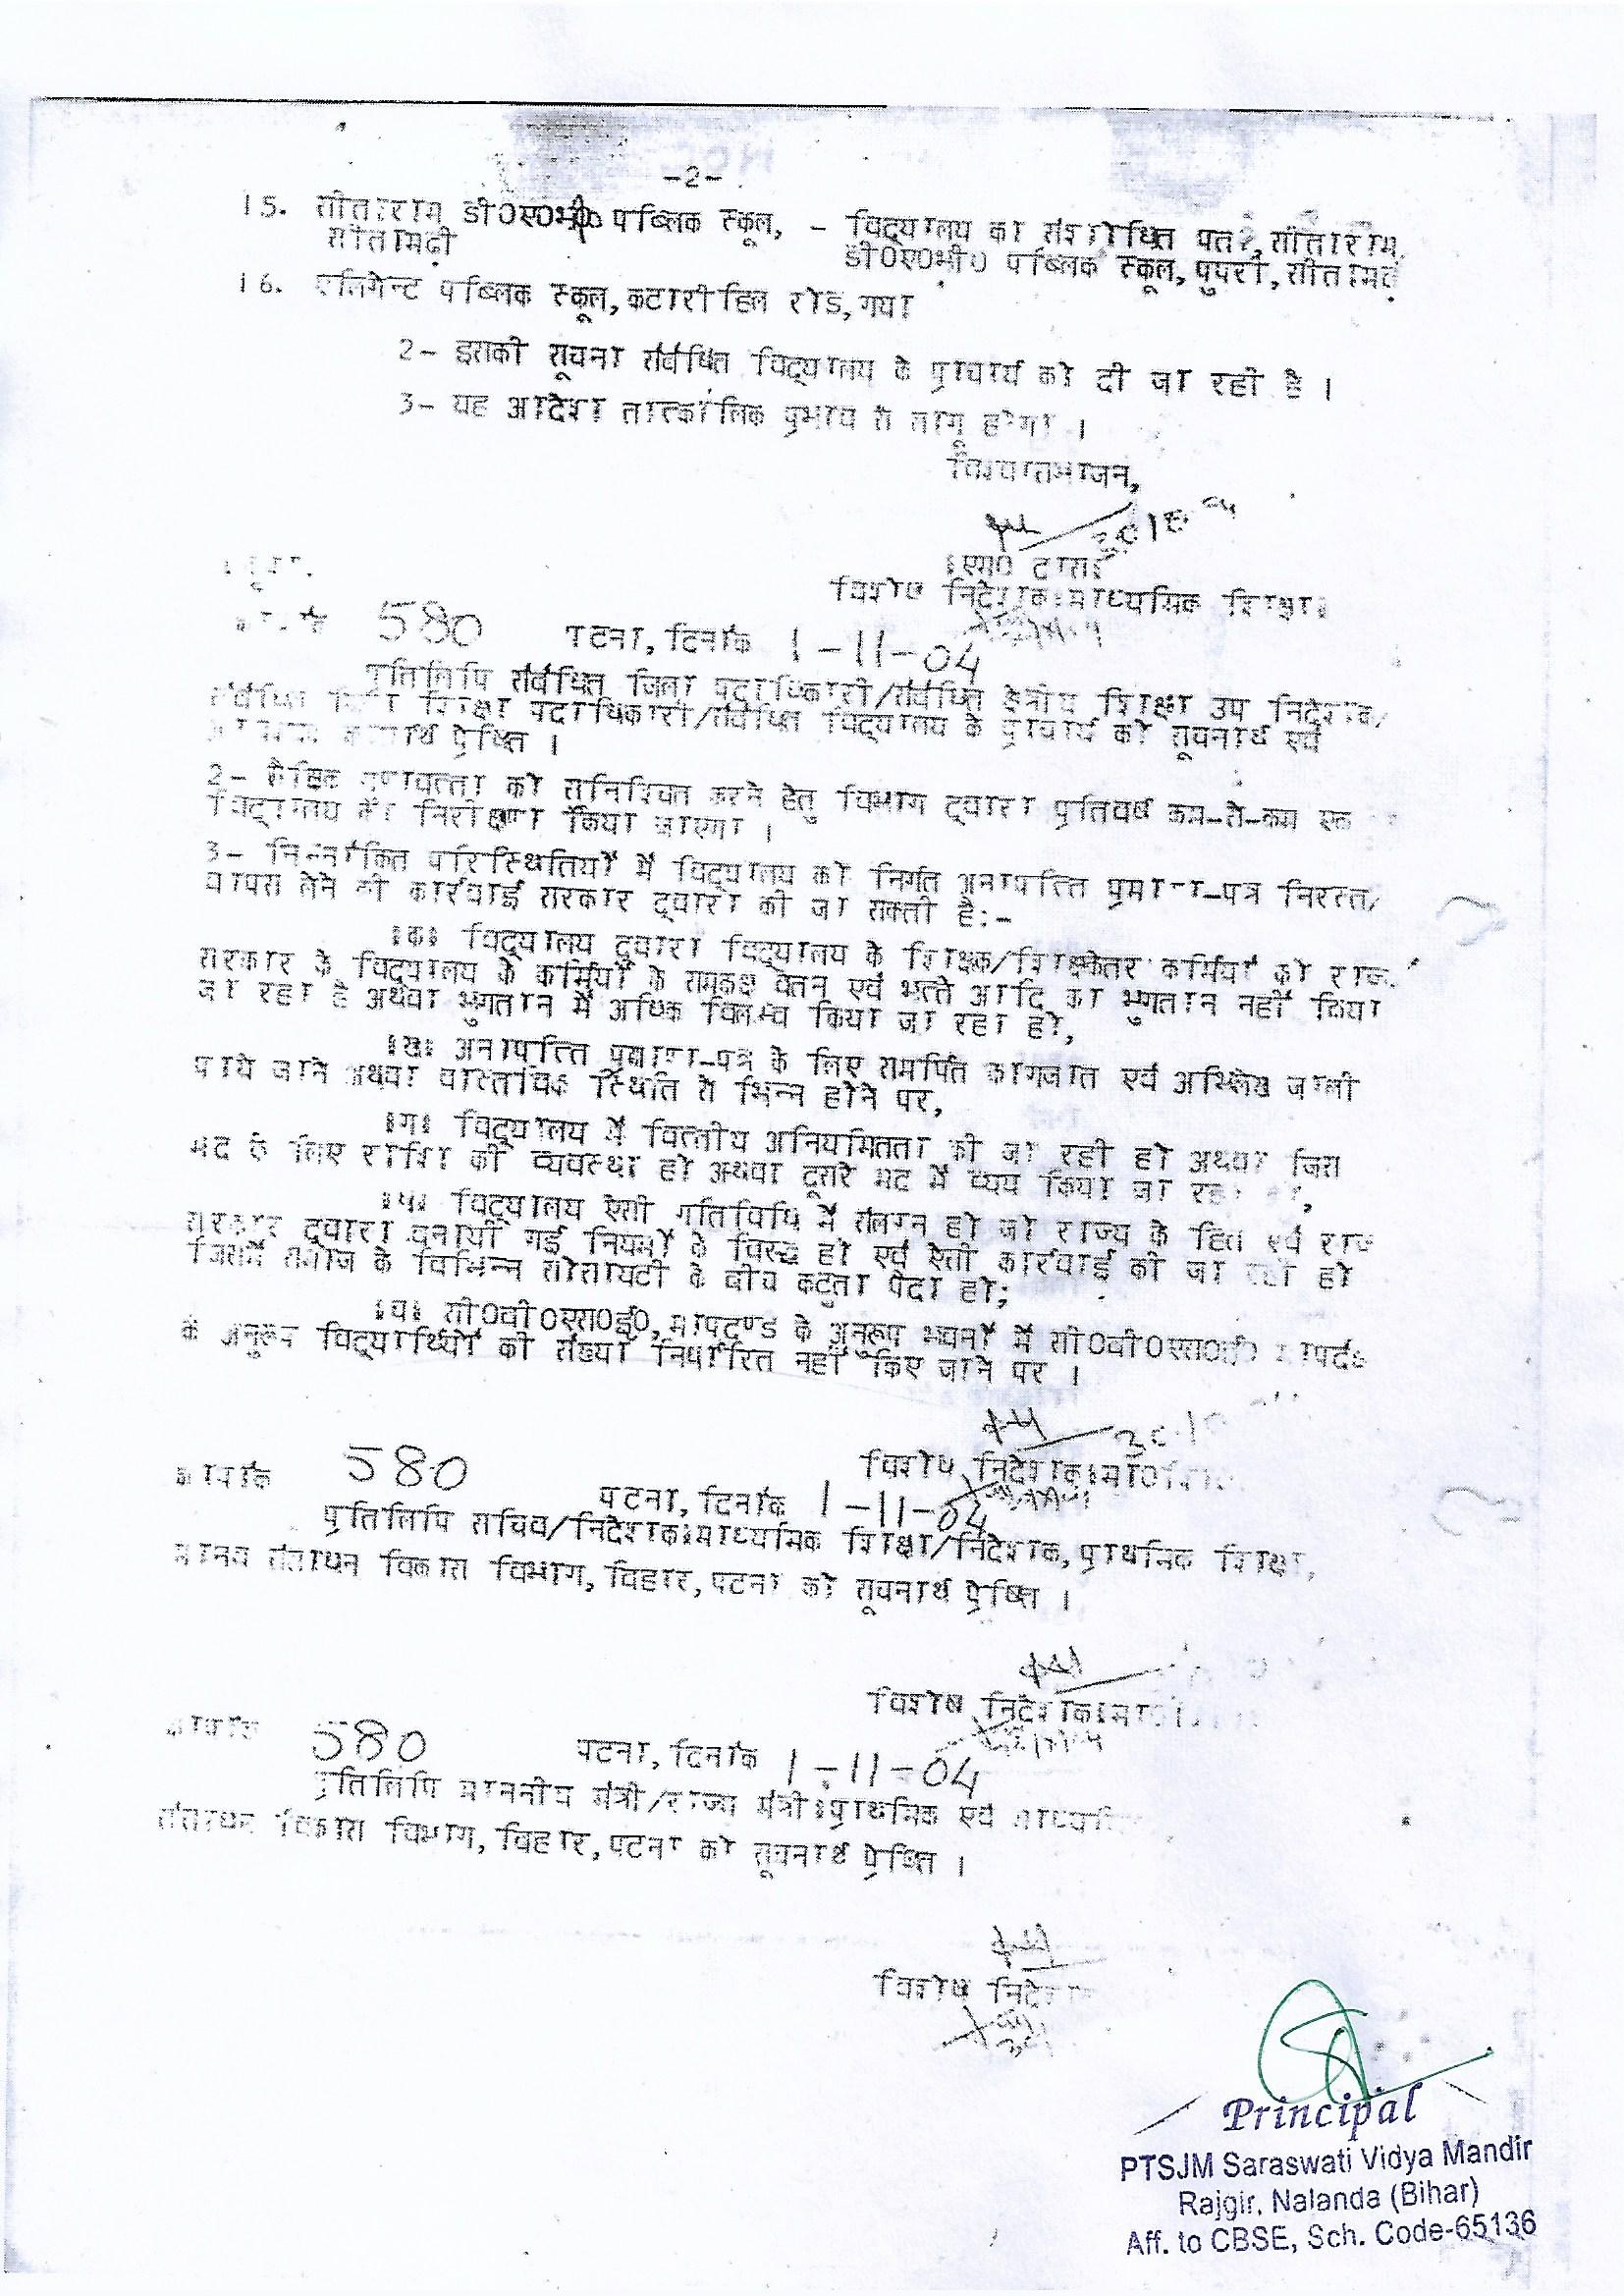 -2-
15. सीताराम डी0ए0भी0 पब्लिक स्कूल, - विद्यालय का संशोधित पता, सीताराम
सीतामढ़ी डी0ए0भी0 पब्लिक स्कूल, पुपरी, सीतामढ़ी
16. एलिगेन्ट पब्लिक स्कूल, कटारी हिल रोड, गया
2- इसकी सूचना संबंधित विद्यालय के प्राचार्य को दी जा रही है ।
3- यह आदेश तात्कालिक प्रभाव से लागू होगा ।
विश्वासभाजन,
विशेष निदेशक माध्यमिक शिक्षा
580 पटना, दिनांक 1-11-04
प्रतिलिपि संबंधित जिला पदाधिकारी/संबंधित क्षेत्रीय शिक्षा उप निदेशक/
संबंधित जिला शिक्षा पदाधिकारी/संबंधित विद्यालय के प्राचार्य को सूचनार्थ एवं
प्रेषित ।
2- शैक्षिक गुणवत्ता को सुनिश्चित करने हेतु विभाग द्वारा प्रतिवर्ष कम-से-कम एक
विद्यालय का निरीक्षण किया जाएगा ।
3- निम्नांकित परिस्थितियों में विद्यालय को निर्गत अनापत्ति प्रमाण-पत्र निरस्त/
वापस लेने की कार्रवाई सरकार द्वारा की जा सकती है:-
॥क॥ विद्यालय द्वारा विद्यालय के शिक्षक/शिक्षकेतर कर्मियों को राज्य
सरकार के विद्यालय के कर्मियों के समकक्ष वेतन एवं भत्ते आदि का भुगतान नहीं किया
जा रहा है अथवा भुगतान में अधिक विलम्ब किया जा रहा हो,
॥ख॥ अनापत्ति प्रमाण-पत्र के लिए समर्पित कागजात एवं अभिलेख जाली
पाये जाने अथवा वास्तविक स्थिति से भिन्न होने पर,
॥ग॥ विद्यालय में वित्तीय अनियमितता की जा रही हो अथवा जिस
मद के लिए राशि की व्यवस्था हो अथवा दूसरे मद में व्यय किया जा रहा हो,
॥घ॥ विद्यालय ऐसी गतिविधि में संलग्न हो जो राज्य के हित एवं राज्य
सरकार द्वारा बनायी गई नियमों के विरुद्ध हो एवं ऐसी कार्रवाई की जा रही हो
जिसमें समाज के विभिन्न सोसायटी के बीच कटुता पैदा हो;
॥च॥ सी0बी0एस0ई0, मापदण्ड के अनुरूप भवनों में सी0बी0एस0ई0 मापदंड
के अनुरूप विद्यार्थियों की संख्या निर्धारित नहीं किए जाने पर ।
विशेष निदेशक
ज्ञापांक 580 पटना, दिनांक 1-11-04
प्रतिलिपि सचिव/निदेशक माध्यमिक शिक्षा/निदेशक, प्राथमिक शिक्षा,
मानव संसाधन विकास विभाग, बिहार, पटना को सूचनार्थ प्रेषित ।
विशेष निदेशक
ज्ञापांक 580 पटना, दिनांक 1-11-04
प्रतिलिपि माननीय मंत्री/राज्य मंत्री प्राथमिक एवं माध्यमिक
संसाधन विकास विभाग, बिहार, पटना को सूचनार्थ प्रेषित ।
विशेष निदेशक
Principal
PTSJM Saraswati Vidya Mandir
Rajgir, Nalanda (Bihar)
Aff. to CBSE, Sch. Code-65136